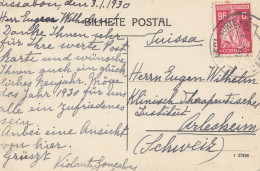 Lissabon, den 3.1.1930
BILHETE POSTAL
Herr Eugen Wilhelm
Danke Ihnen sehr
für Ihre werte Post
karte und wünsche
Ihnen auch ein glück
liches Neujahr. Möge
das Jahr 1930 für uns
alle ein zufriedenes
sein.
Anbei eine Ansicht
von hier.
Grüsst
Violante Gonçalves
Suissa
Herrn Eugen Wilhelm
Klinisch Therapeutisches
Institut
Arlesheim
(Schweiz)